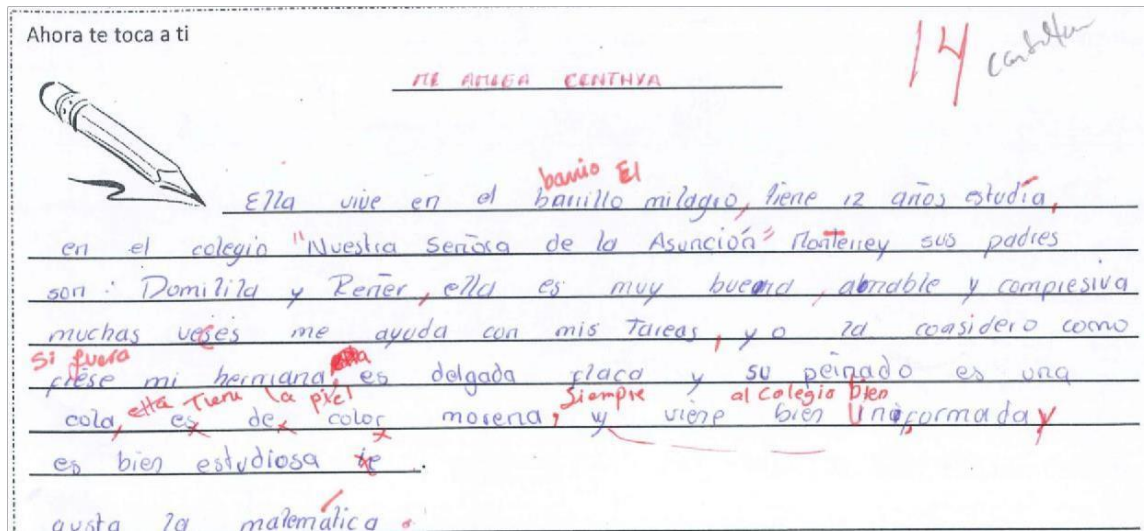 Ahora te toca a ti
14
MI AMIGA CENTHYA
barrio El
Ella vive en el barrillo milagro, tiene 12 años estudía,
en el colegio "Nuestra Señora de la Asunción" Monterrey sus padres
son: Domilila y Reñer, ella es muy buena, amable y compresiva
muchas veses me ayuda con mis Tareas, yo la considero como
si fuera
fuese mi hermana, es delgada flaca y su peinado es una
Tiene la piel siempre al colegio bien
cola, es de color morena, y viene bien Uniformada y
es bien estudiosa le.
gusta la matemática.